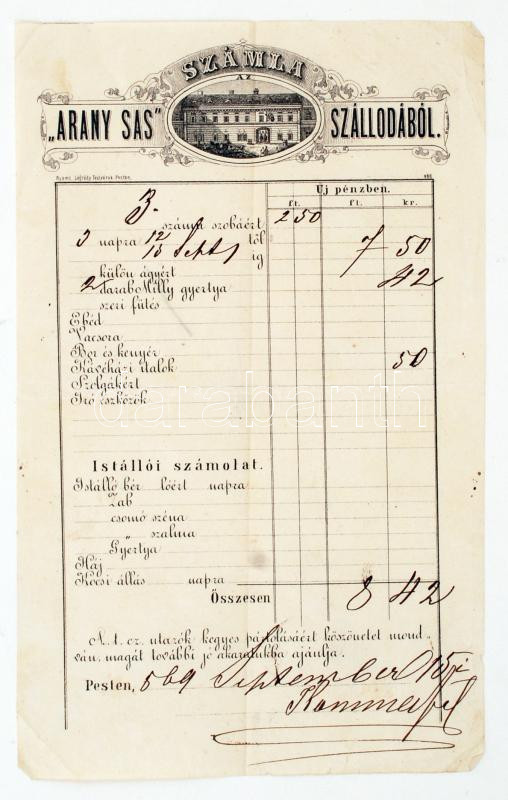 SZÁMLA
AZ
„ARANY SAS" SZÁLLODÁBÓL.
Nyomt. Légrády Testvérek Pesten.
Uj pénzben.
ft. ft. kr.
3. számu szobáért 2 50
3 napra 12/15 Sept tól 7 50
ig
külön ágyért
2 darab Milly gyertya 42
szeri fütés
Ebéd
Vacsora
Bor és kenyér
Kávéházi italok 50
Szolgákért
Iró eszközök
Istállói számolat.
Istálló bér lóért napra
Zab
csomó széna
„ szalma
Gyertya
Háj
Kocsi állás napra
Összesen 8 42
A t. cz. utazók kegyes pártolásáért köszönetet mond-
ván, magát további jó akaratukba ajánlja.
Pesten, 569 September 15
darabanth